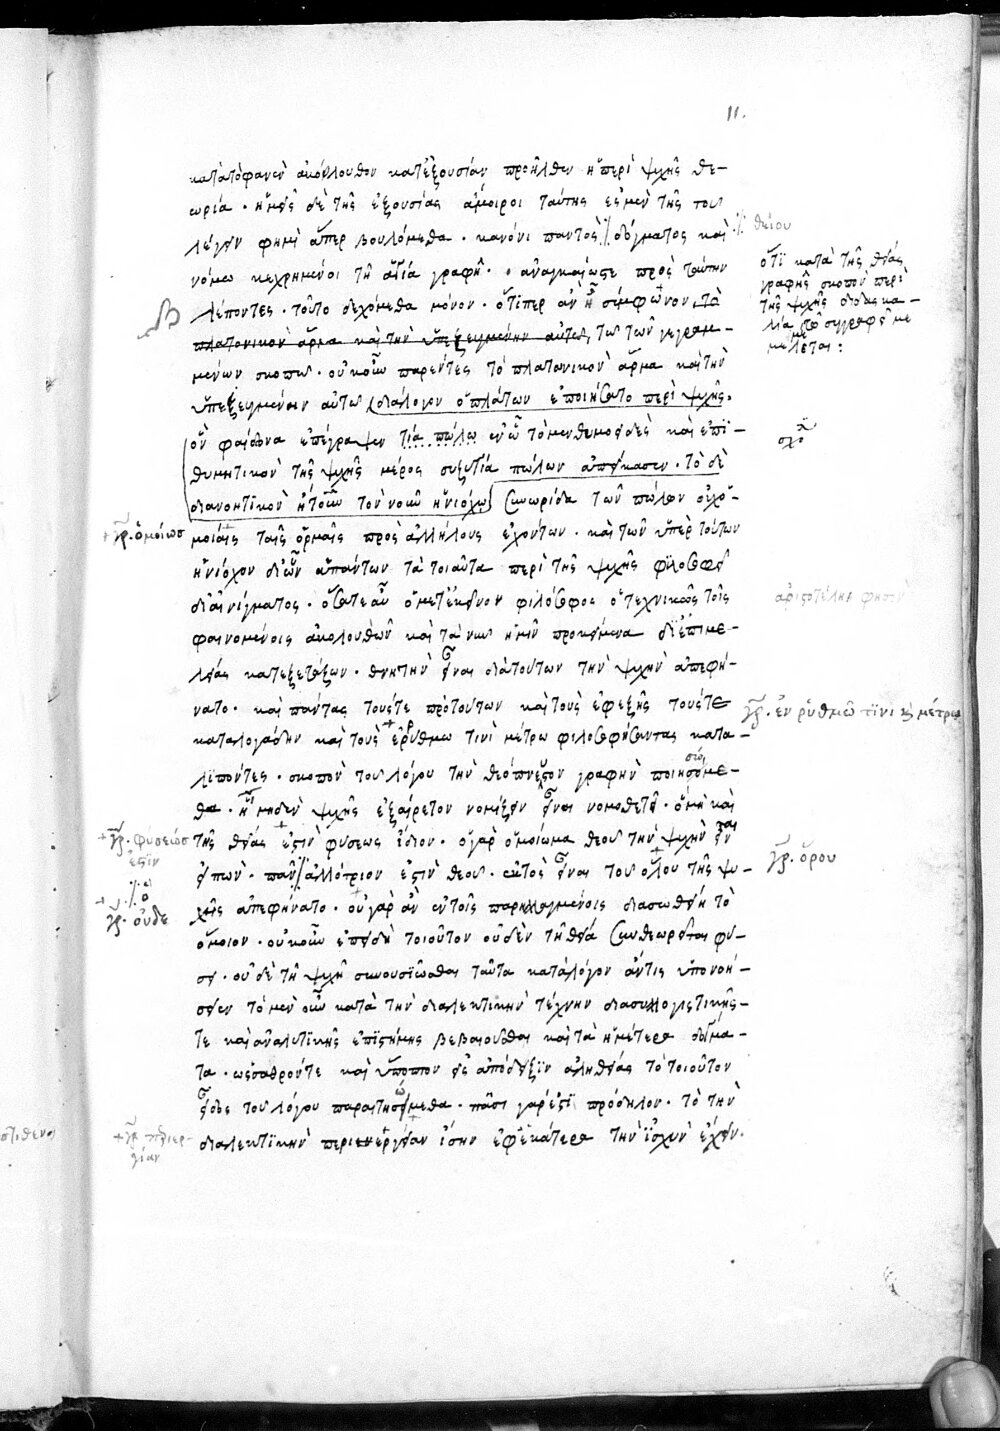 11.
κατὰ τὸ φανὲν ἀκόλουθον κατ' ἐξουσίαν προῆλθεν ἡ περὶ ψυχῆς θε-
ωρία · ἡμεῖς δὲ τῆς ἐξουσίας ἄμοιροι ταύτης ἐσμὲν τῆς του
λέγειν φημὶ ἅπερ βουλόμεθα · κανόνι παντὸς δόγματος καὶ
θείου
νόμω κεχρημένοι τῆ ἁγία γραφῆ · ἀναγκαίως πρὸς ταύτην
βλέποντες · τοῦτο δεχόμεθα μόνον · ὅτιπερ ἂν ἦ σύμφωνον τὰ
πλατονικὸν ἅρμα καὶ τὴν ὑπεζευγμένην αὐτω, τω τῶν γεγραμ-
μένων σκοπω · οὐκοῦν παρέντες τὸ πλατωνικὸν ἅρμα καὶ τὴν
ὑπεζευγμένην αὐτω διάλογον ὁ πλάτων ἐποιήσατο περὶ ψυχῆς.
ὃν φαίδωνα ἐπέγραψεν πώλω ἐν ᾧ τὸ μὲν θυμοειδὲς καὶ ἐπι-
θυμητικὸν τῆς ψυχῆς μέρος συζυγία πώλων ἀπείκασεν · τὸ δὲ
διανοητικὸν ἤτοι τὸν νοῦν ἡνιόχω ξυνωρίδα τῶν πώλων οὐχ ὁ-
μοίαις ταῖς ὁρμαῖς πρὸς ἀλλήλους ἐχόντων · καὶ τὸν ὑπὲρ τούτων
ἡνίοχον δι' ὧν ἁπάντων τὰ τοιαῦτα περὶ τῆς ψυχῆς φιλοσοφεῖ
δι' αἰνίγματος · ὅσα τε αὖ ὁ μετ' ἐκεῖνον φιλόσοφος ὁ τεχνικῶς τοῖς
φαινομένοις ἀκολουθῶν καὶ τὰ νῦν ἡμῖν προκείμενα δι' ἐπιμε-
λείας κατεξετάζων · θνητὴν εἶναι διὰ τούτων τὴν ψυχὴν ἀπεφή-
νατο · καὶ πάντας τούς τε πρὸ τούτων καὶ τοὺς ἐφεξῆς τούς τε
καταλογάδην καὶ τοὺς ἐρύθμω τινὶ μέτρω φιλοσοφήσαντας κατα-
λιπόντες · σκοπὸν του λόγου τὴν θεόπνευστον γραφὴν ποιησόμε-
θα · ἣ μηδὲν ψυχῆς ἐξαίρετον νομίζειν εἶναι νομοθετεῖ · ὃ μὴ καὶ
τῆς θείας ἐστὶν φύσεως ἴδιον · ὁ γὰρ ὁμοίωμα θεου τὴν ψυχὴν εἶναι
εἰπὼν · πᾶν ἀλλότριον ἐστὶν θεου · ἐκτὸς εἶναι του ὅλου τῆς ψυ-
χῆς ἀπεφήνατο · οὐ γὰρ ἂν ἐν τοῖς παρηλλαγμένοις διασωθείη τὸ
ὅμοιον · οὐκοῦν ἐπειδὴ τοιοῦτον οὐδὲν τῆ θεία συνθεωρεῖται φύ-
σει · οὐδὲ τῆ ψυχῆ συνουσιῶσθαι ταῦτα κατὰ λόγον ἄν τις ὑπονοή-
σειεν τὸ μὲν οὖν κατὰ τὴν διαλεκτικὴν τέχνην διὰ συλλογιστικῆς-
τε καὶ ἀναλυτικῆς ἐπιστήμης βεβαιοῦσθαι καὶ τὰ ἡμέτερα δόγμα-
τα · ὡς σαθρόν τε καὶ ὕποπτον εἰς ἀπόδειξιν ἀληθείας τὸ τοιοῦτον
εἶδος του λόγου παραιτησόμεθα · πᾶσι γάρ ἐστι πρόδηλον · τὸ τὴν
διαλεκτικὴν περιενέργειαν ἴσην ἐφ' ἑκάτερα τὴν ἰσχὺν ἔχειν.
ὅτι κατὰ τῆς θείας
γραφῆς σκοπὸν περὶ
τῆς ψυχῆς
με
σχό
γρ. ὁμοίως
ἀριστοτέλης φησὶν
γρ. ἐν ῥυθμῶ τινι καὶ μέτρω
γρ. φύσεώς
ἐστιν
γρ. ὅρου
ὃ
γρ. οὐδε
γρ. περιερ-
γίαν